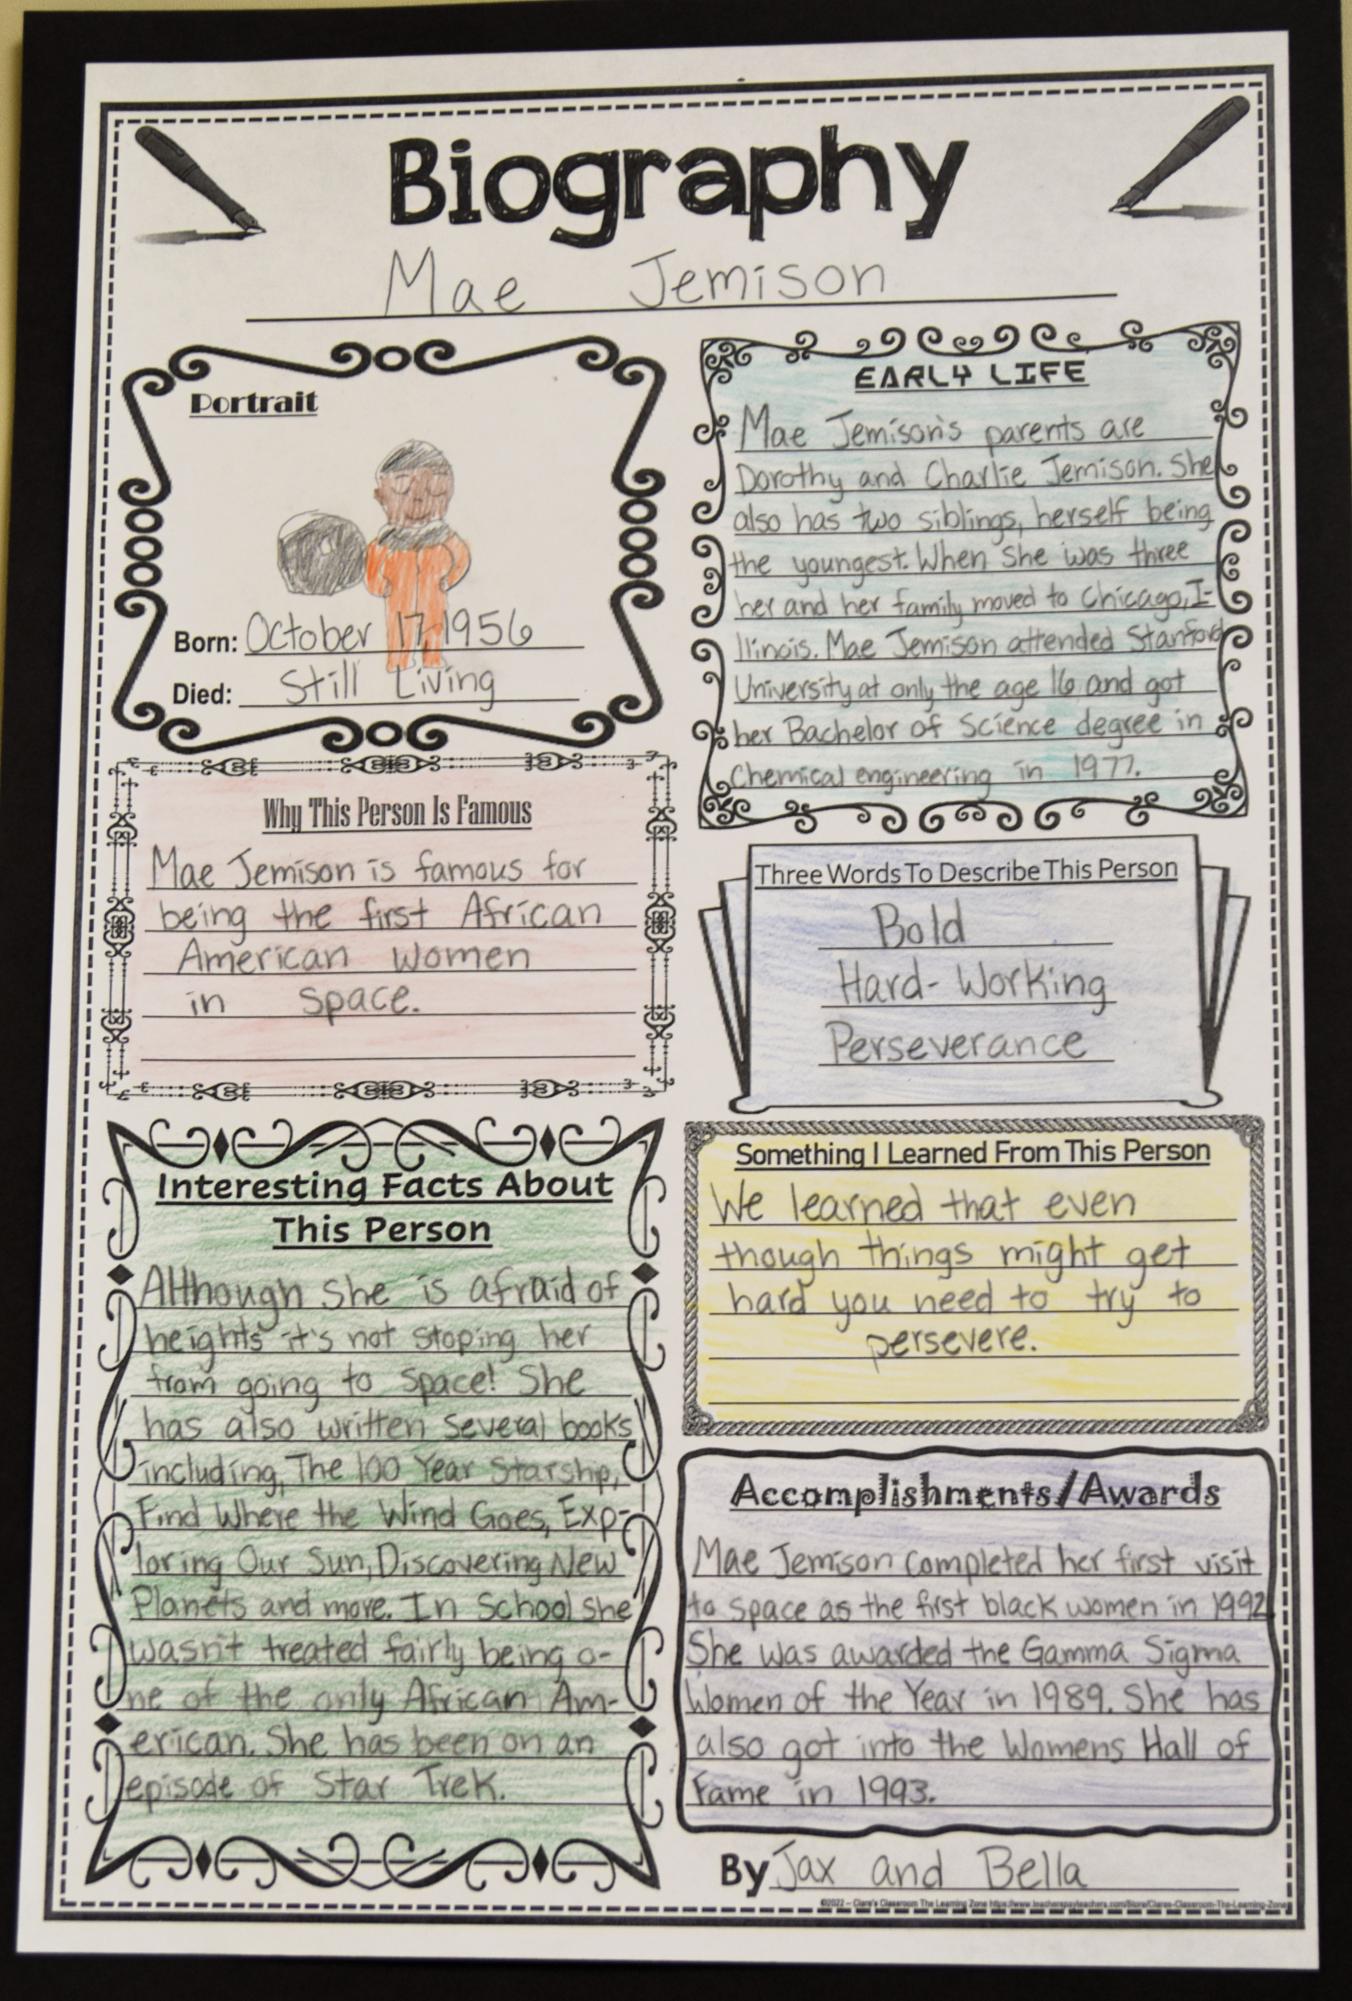 Biography
Mae Jemison
Portrait
Born: October 17, 1956
Died: Still Living
EARLY LIFE
Mae Jemison's parents are
Dorothy and Charlie Jemison. She
also has two siblings, herself being
the youngest. When she was three
her and her family moved to Chicago, I-
llinois. Mae Jemison attended Stanford
University at only the age 16 and got
her Bachelor of Science degree in
Chemical engineering in 1977.
Why This Person Is Famous
Mae Jemison is famous for
being the first African
American women
in space.
Three Words To Describe This Person
Bold
Hard-Working
Perseverance
Interesting Facts About
This Person
Although she is afraid of
heights it's not stoping her
from going to space! She
has also written several books
including, The 100 Year Starship,
Find Where the Wind Goes, Exp-
loring Our Sun, Discovering New
Planets and more. In School she
wasn't treated fairly being o-
ne of the only African Am-
erican. She has been on an
episode of Star Trek.
Something I Learned From This Person
We learned that even
though things might get
hard you need to try to
persevere.
Accomplishments/Awards
Mae Jemison completed her first visit
to space as the first black women in 1992
She was awarded the Gamma Sigma
Women of the Year in 1989. She has
also got into the Womens Hall of
Fame in 1993.
By Jax and Bella
©2022 – Clare's Classroom The Learning Zone https://www.teacherspayteachers.com/Store/Clares-Classroom-The-Learning-Zone